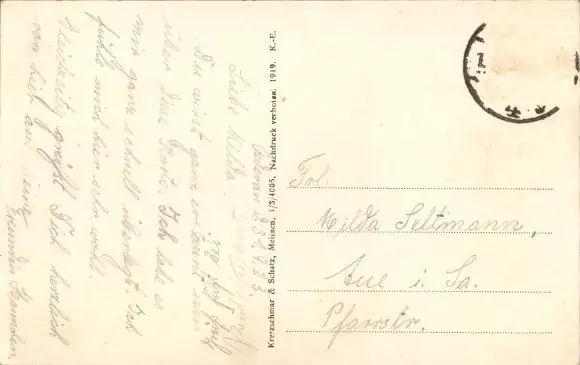 Oederan d. 31.7.23
Liebe Milda.
Du wirst ganz erstaunt sein
über diese Karte. Ich habe es
mir ganz schnell überlegt. Ich
fühle mich hier sehr wohl.
Gleichzeitig grüßt Dich herzlich
von hier aus Deine
Freundin
Kretzschmar & Schatz, Meissen, 1/3/4005. Nachdruck verboten. 1919. K.-E.
Frl.
Milda Seltmann,
Aue i. Sa.
Pfarrstr.